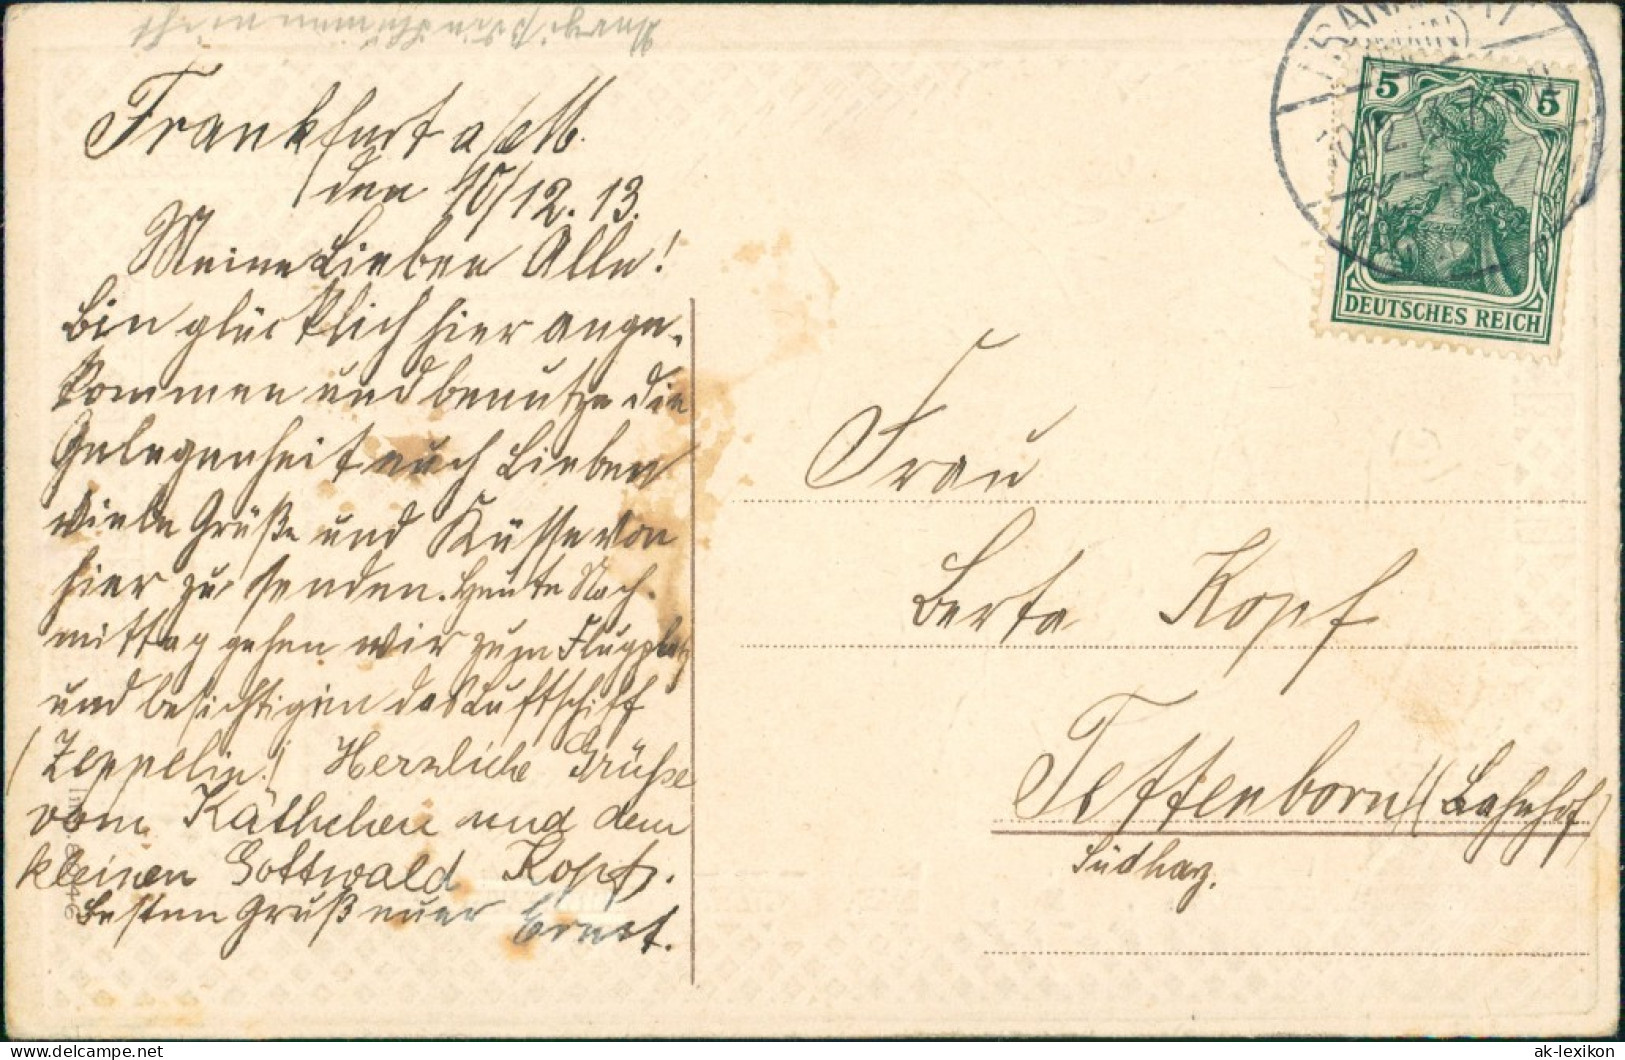 Frankfurt a/M.
den 10/12. 13.
Meine Lieben Alle!
Bin glücklich hier ange-
kommen und benutze die
Gelegenheit euch Lieben
viele Grüße und Küsse von
hier zu senden. Heute Nach-
mittag gehen wir zum Flugplatz
und besichtigen das Luftschiff
(Zeppelin.) Herzliche Grüsse
vom Käthchen und dem
kleinen Gottwald Kopf.
Besten Gruß euer Ernst.
5 5
DEUTSCHES REICH
Frau
Berta Kopf
Tettenborn (Bahnhof)
Südharz.
ak-lexikon
https://www.delcampe.net